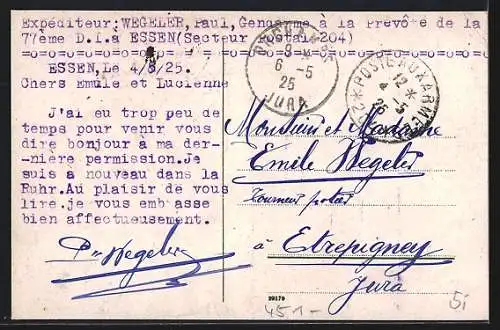 Expéditeur:WEGELER,Paul,Gendarme à la Prévôté de la
77ème D.I.à ESSEN(Secteur Postal 204)
ESSEN,Le 4/5/25.
Chers Emile et Lucienne
J'ai eu trop peu de
temps pour venir vous
dire bonjour à ma der-
-nière permission.Je
suis à nouveau dans la
Ruhr.Au plaisir de vous
lire.je vous embrasse
bien affectueusement.
P. Wegeler
9-*
6 -5
25
JURA
*POSTE AUX ARMEES*
12 *
4 -5
25
Monsieur et Madame
Emile Wegeler
Tourneur
à Etrepigney
Jura
29179
451-
5i